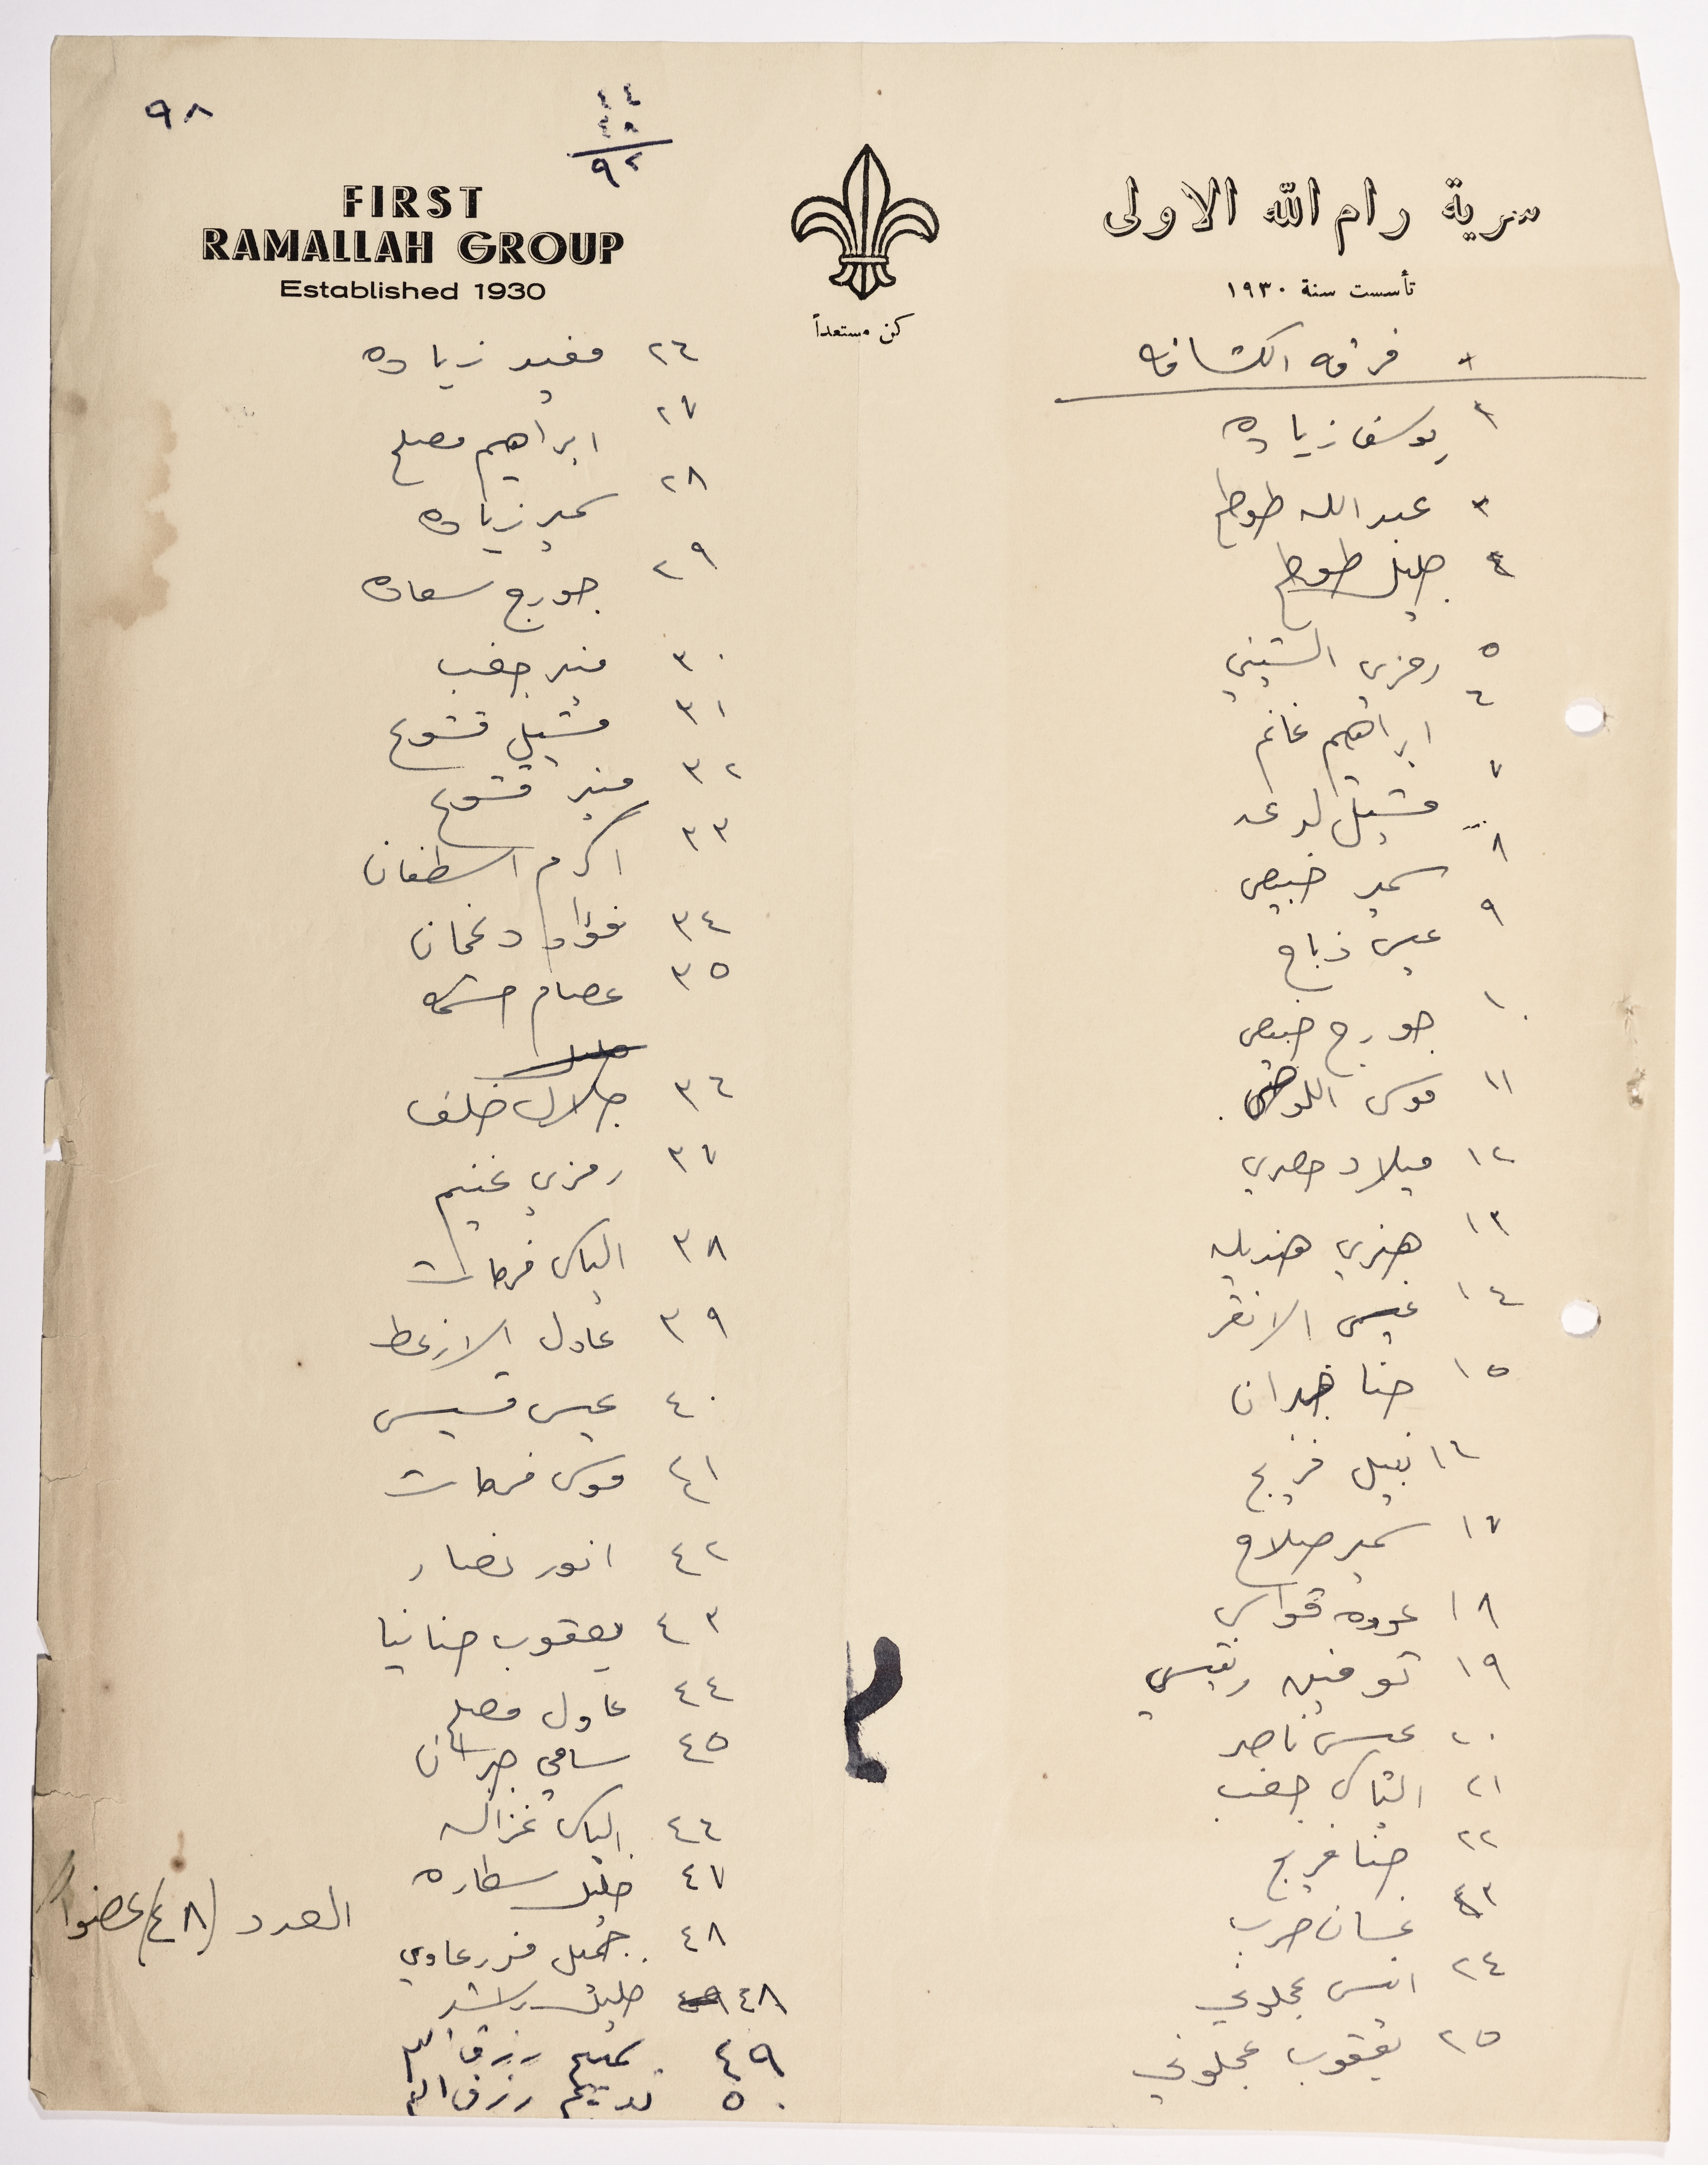 ٩٨
٤٤
٤٨
٩٢
FIRST
RAMALLAH GROUP
Established 1930
سرية رام الله الاولى
تأسست سنة ١٩٣٠
كن مستعداً
فرقه الكشافه
٢ يوسف زياده
٣ عبد الله طوطح
٤ خليل طوطح
٥ رمزي الشيني
٦ ابراهيم غانم
٧ ميشيل لدعه
٨ سمير خبيص
٩ عيسى ذباح
١٠ جورج خبيص
١١ موسى اللوصي
١٢ ميلاد مصري
١٣ هنري هنديله
١٤ عيسى الانقر
١٥ حنا جدان
١٦ نبيل فريج
١٧ سمير صلاح
١٨ عوده قواس
١٩ توفيق ريتسي
٢٠ عيسى ناصر
٢١ الياس جغب
٢٢ حنا فريج
٢٣ غسان حرب
٢٤ انس عجلوني
٢٥ يعقوب عجلوني
٢٦ مفيد زياده
٢٧ ابراهيم مصلح
٢٨ سمير زياده
٢٩ جورج سعاده
٣٠ منير جغب
٣١ ميشيل قشوع
٣٢ منير قشوع
٣٣ اكرم اسطفان
٣٤ فؤاد دغمان
٣٥ عصام حشمه
٣٦ جلال خلف
٣٧ رمزي غنيم
٣٨ الياس فرحات
٣٩ عادل الازعط
٤٠ عيسى قسيس
٤١ موسى فرحات
٤٢ انور نصار
٤٣ يعقوب حنانيا
٤٤ عادل مصلح
٤٥ سامي جبران
٤٦ الياس غزاله
٤٧ خليل سطاره
٤٨ جميل قدرعاوي
٤٨ خليل راشد
٤٩ سميح رزق الله
٥٠ نديم رزق الله
العدد (٤٨) عضوا